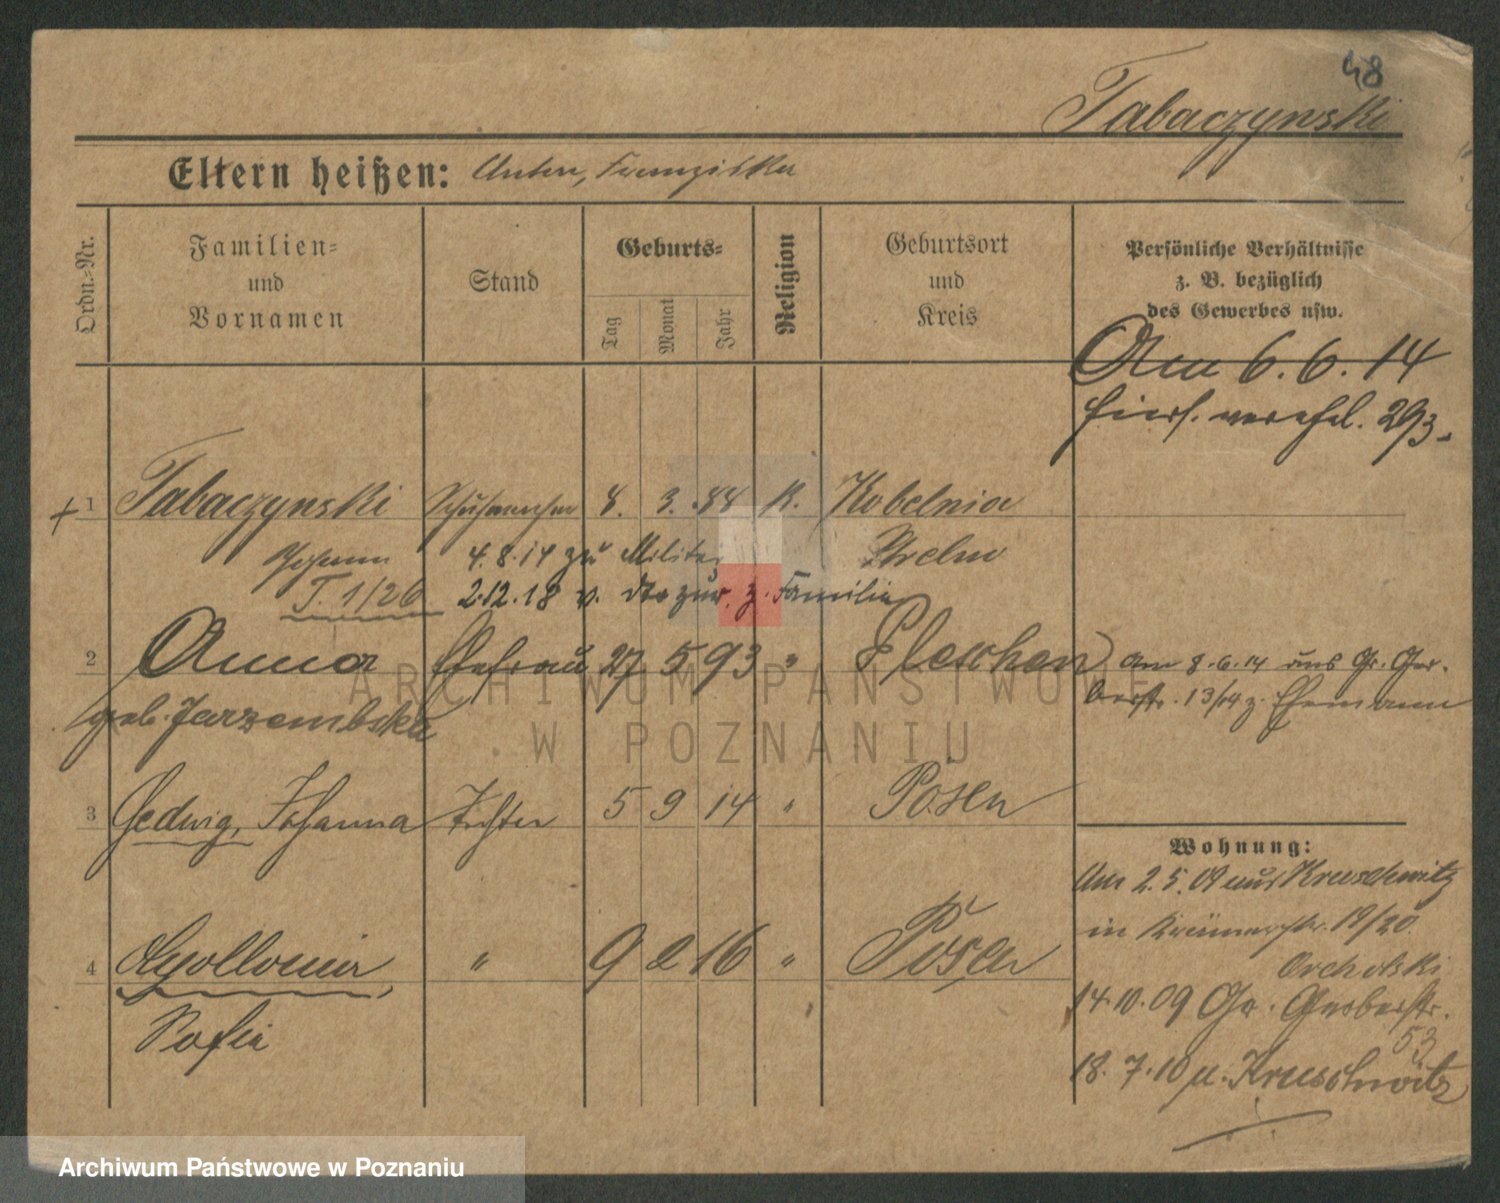 48
Tabaczynski
Eltern heißen: Anton, Franziska
Ordn.=Nr.
Familien=
und
Vornamen
Stand
Geburts=
Tag
Monat
Jahr
Religion
Geburtsort
und
Kreis
Persönliche Verhältnisse
z. B. bezüglich
des Gewerbes usw.
Am 6.6.14
hiers. verehel. 293.
1 Tabaczynski Schuhmacher 8. 3. 88 K. Kobelnia
Johann 4.8.14 zu Militär Strelno
T. 1/26 2.12.18 v. zur. z. Familie
2 Anna Ehefrau 27 5 93 " Pleschen
geb. Jarzembska
am 8.6.14 aus Gr. Ger-
berstr. 13/14 z. Ehemann
3 Hedwig, Johanna Tochter 5 9 14 " Posen
4 Apollonia " 9 2 16 " Posen
Sofia
Wohnung:
Am 2.5.09 aus Kruschwitz
in Krämerstr. 19/20
Orcholski
14.10.09 Gr. Gerberstr.
53
18.7.10 n. Kruschwitz
ARCHIWUM PAŃSTWOWE
W POZNANIU
Archiwum Państwowe w Poznaniu